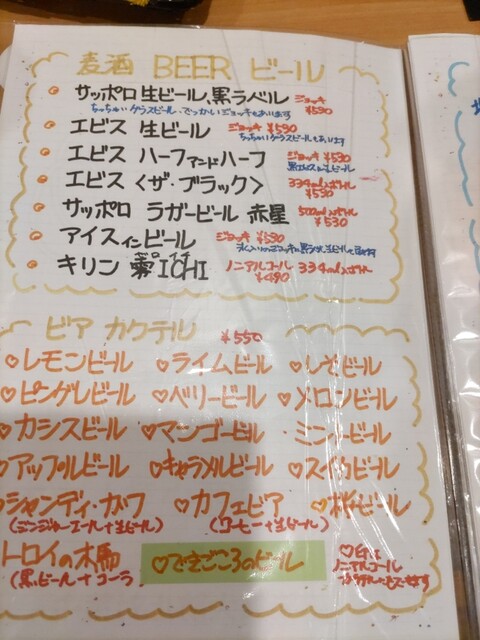 麦酒 BEER ビール
サッポロ生ビール黒ラベル ジョッキ ¥590
ちっちゃいグラスビール、でっかいジョッキもあります
エビス 生ビール ジョッキ ¥590
ちっちゃいグラスビールもあります
エビス ハーフアンドハーフ ジョッキ ¥590
エビス〈ザ・ブラック〉 334mlボトル ¥590
サッポロ ラガービール 赤星 500mlボトル ¥530
アイスインビール ジョッキ ¥590
キリン 零ICHI ノンアルコール 334ml ¥490
ビアカクテル ¥550
♡レモンビール ♡ライムビール ♡しそビール
♡ピングレビール ♡ベリービール ♡メロンビール
♡カシスビール ♡マンゴービール ミントビール
♡アップルビール ♡キャラメルビール ♡スイカビール
シャンディ・ガフ ♡カフェビア ♡ビール
(ジンジャーエール+生ビール) (コーヒー+生ビール)
トロイの木馬 ♡できごころのビール ♡は
(黒ビール+コーラ ノンアルコール
できます